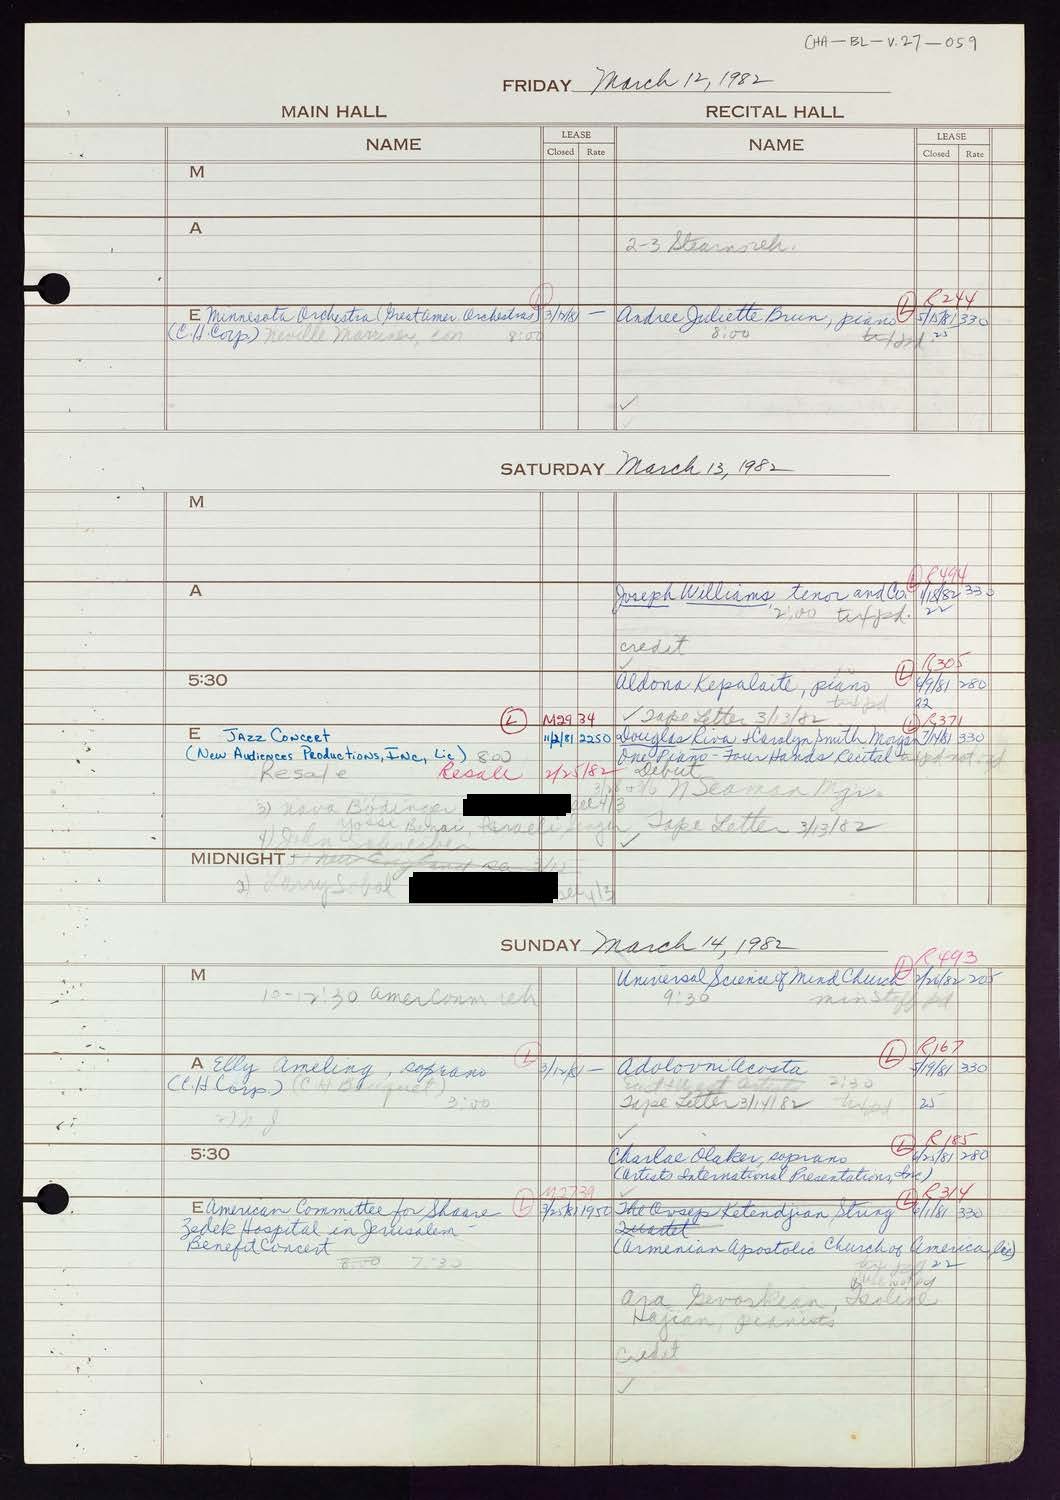 CHA-BL-V.27-059
FRIDAY March 12, 1982
MAIN HALL RECITAL HALL
NAME LEASE Closed Rate NAME LEASE Closed Rate
M
A
2-3 Stearns reh.
R244
E Minnesota Orchestra (Great Amer. Orchestras) L 3/12/81 — Andree Juliette Brun, piano L 5/15/81 330
(C.H. Corp) Neville Marriner, con 8:00 8:00 tx/pd. 25
✓
SATURDAY March 13, 1982
M
R494
A Joseph Williams, tenor and Co. L 1/18/82 330
2:00 tx/pd. 22
credit
✓ R305
5:30 Aldona Kepalaite, piano L 280
tx/pd 22
✓ Tape Letter 3/13/82
L M2934 L R371
E Jazz Concert 11/2/81 2250 Douglas Riva + Carolyn Smith Morgan 330
(New Audiences Productions, Inc, Lic) 8:00 One Piano - Four Hands Recital
Resale Resale 2/25/82 Debut
N Seaman Mgr.
3) Nava Bodinger 4/3
Yossi Israeli Singer ✓ Tape Letter 3/13/82
4) John
MIDNIGHT
2) Larry Sobol 4/3
SUNDAY March 14, 1982
R493
M Universal Science of Mind Church L 2/26/82 205
10-12:30 Amer Comm reh 9:30 min Staff pd
R167
A Elly Ameling, soprano L 3/12/81 — Adolovni Acosta L 330
(C.H Corp.) (CH Bouquet) East & West Artists 2:30
3:00 Tape Letter 3/14/82 tx/pd 25
✓
R185
5:30 Charlae Olaker, soprano L 280
(Artists International Presentations, Inc)
M2739 ✓ R314
E American Committee for Shaare L 3/25/81 1950 The Ovsep Ketendjian String L 330
Zedek Hospital in Jerusalem - Quartet
Benefit Concert (Armenian Apostolic Church of America, Lic)
8:00 7:30 22
Ara Gevorkian, Isoline
Hajian, pianists
credit
✓